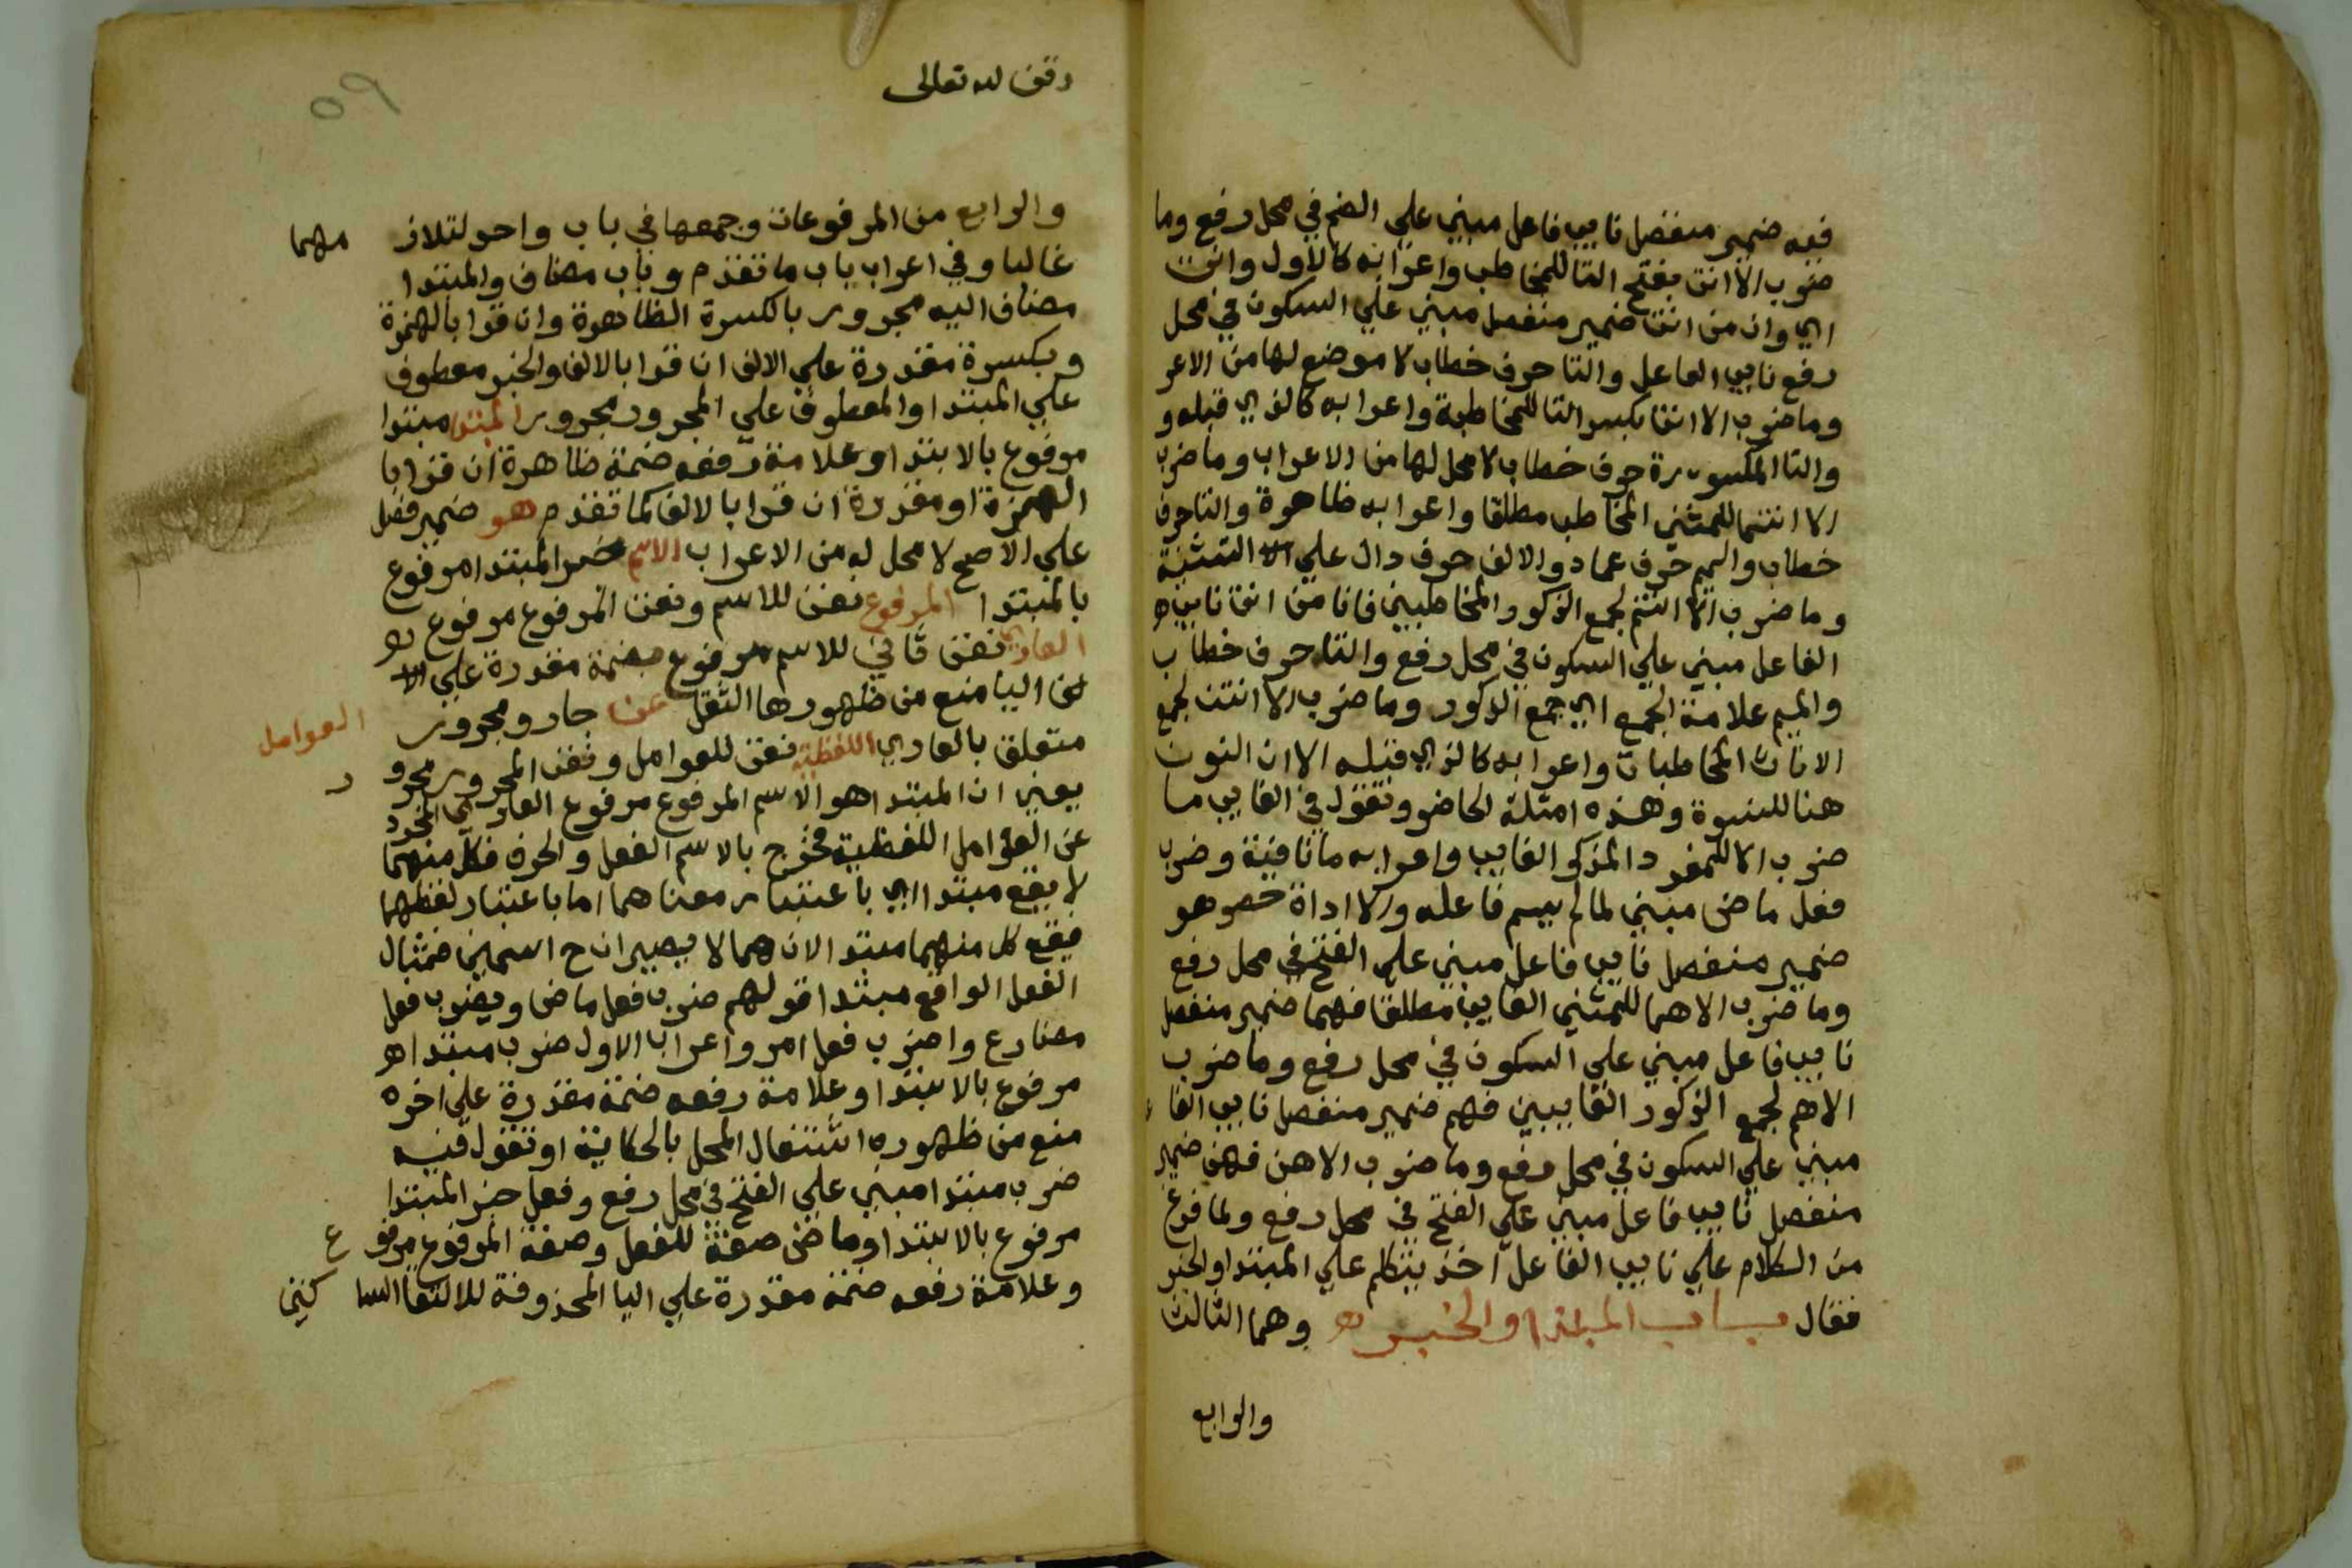 فيه ضمير منفصل نايب فاعل مبني علي الضم في محل رفع وما
ضرب الا انت بفتح التا للمخاطب واعرابه كالاول وانت
اي وان من انت ضمير منفصل مبني علي السكون في محل
رفع نايب الفاعل والتا حرف خطاب لا موضع لها من الاعر
وما ضرب الا انت بكسر التا للمخاطبة واعرابه كالذي قبله و
والتا المكسورة حرف خطاب لا محل لها من الاعراب وما ضرب
الا انتما للمثني المخاطب مطلقا واعرابه ظاهرة والتا حرف
خطاب والميم حرف عماد والالف حرف دال علي التثنية
وما ضرب الا انتم لجمع الذكور المخاطبين فانا من انت نايب
الفاعل مبني علي السكون في محل رفع والتا حرف خطاب
والميم علامة الجمع اي جمع الذكور وما ضرب الا انتن لجمع
الاناث المخاطبات واعرابه كالذي قبله الا ان النون
هنا للنسوة وهذه امثلة الحاضر وتقول في الغايب ما
ضرب الا للمفرد المذكر الغايب واعرابه ما نافية وضرب
فعل ماض مبني لما لم يسم فاعله والا اداة حصر هو
ضمير منفصل نايب فاعل مبني علي الفتح في محل رفع
وما ضرب الا هما للمثني الغايب مطلقا فهما ضمير منفصل
نايب فاعل مبني علي السكون في محل رفع وما ضرب
الا هم لجمع الذكور الغايبين فهم ضمير منفصل نايب الفا
مبني علي السكون في محل رفع وما ضرب الا هن فهن ضمير
منفصل نايب فاعل مبني علي الفتح في محل رفع ولما فرغ
من الكلام علي نايب الفاعل اخذ يتكلم علي المبتدا والخبر
فقال باب المبتدا والخبر وهما الثالث
والرابع
وقف لله تعالى
والرابع من المرفوعات وجمعها في باب واحد لتلاز مهما
غالبا وفي اعراب باب ما تقدم وباب مضاف والمبتدا
مضاف اليه مجرور بالكسرة الظاهرة وان قرا بالهمزة
وبكسرة مقدرة علي الالف ان قرا بالالف والخبر معطوف
علي المبتدا والمعطوف علي المجرور مجرور المبتدا مبتدا
مرفوع بالابتدا وعلامة رفعه ضمة ظاهرة ان قرا با
الهمزة او مقدرة ان قرا بالالف كما تقدم هو ضمير فصل
علي الاصح لا محل له من الاعراب الاسم خبر المبتدا مرفوع
بالمبتدا المرفوع نعت للاسم ونعت المرفوع مرفوع
العاري نعت ثاني للاسم مرفوع بضمة مقدرة علي
اليا منع من ظهورها الثقل عن جار ومجرور العوامل
متعلق بالعاري اللفظية نعت للعوامل ونعت المجرور مجرو ر
يعني ان المبتدا هو الاسم المرفوع مرفوع العاري المجرد
عن العوامل اللفظية فخرج بالاسم الفعل والحرف فكل منهما
لا يقع مبتدا اي باعتبار معناهما اما باعتبار لفظهما
فيقع كل منهما مبتدا لانهما لا يصيران ح اسمين فمثال
الفعل الواقع مبتدا قولهم ضرب فعل ماض ويضرب فعل
مضارع واضرب فعل امر واعراب الاول ضرب مبتدا
مرفوع بالابتدا وعلامة رفعه ضمة مقدرة علي اخره
منع من ظهوره اشتغال المحل بالحكاية او تقول فيه
ضرب مبتدا مبني علي الفتح في محل رفع وفعل خبر المبتدا
مرفوع بالابتدا وماض صفة للفعل وصفة المرفوع مرفو ع
وعلامة رفعه ضمة مقدرة علي اليا المحذوفة للالتقا السا كنين